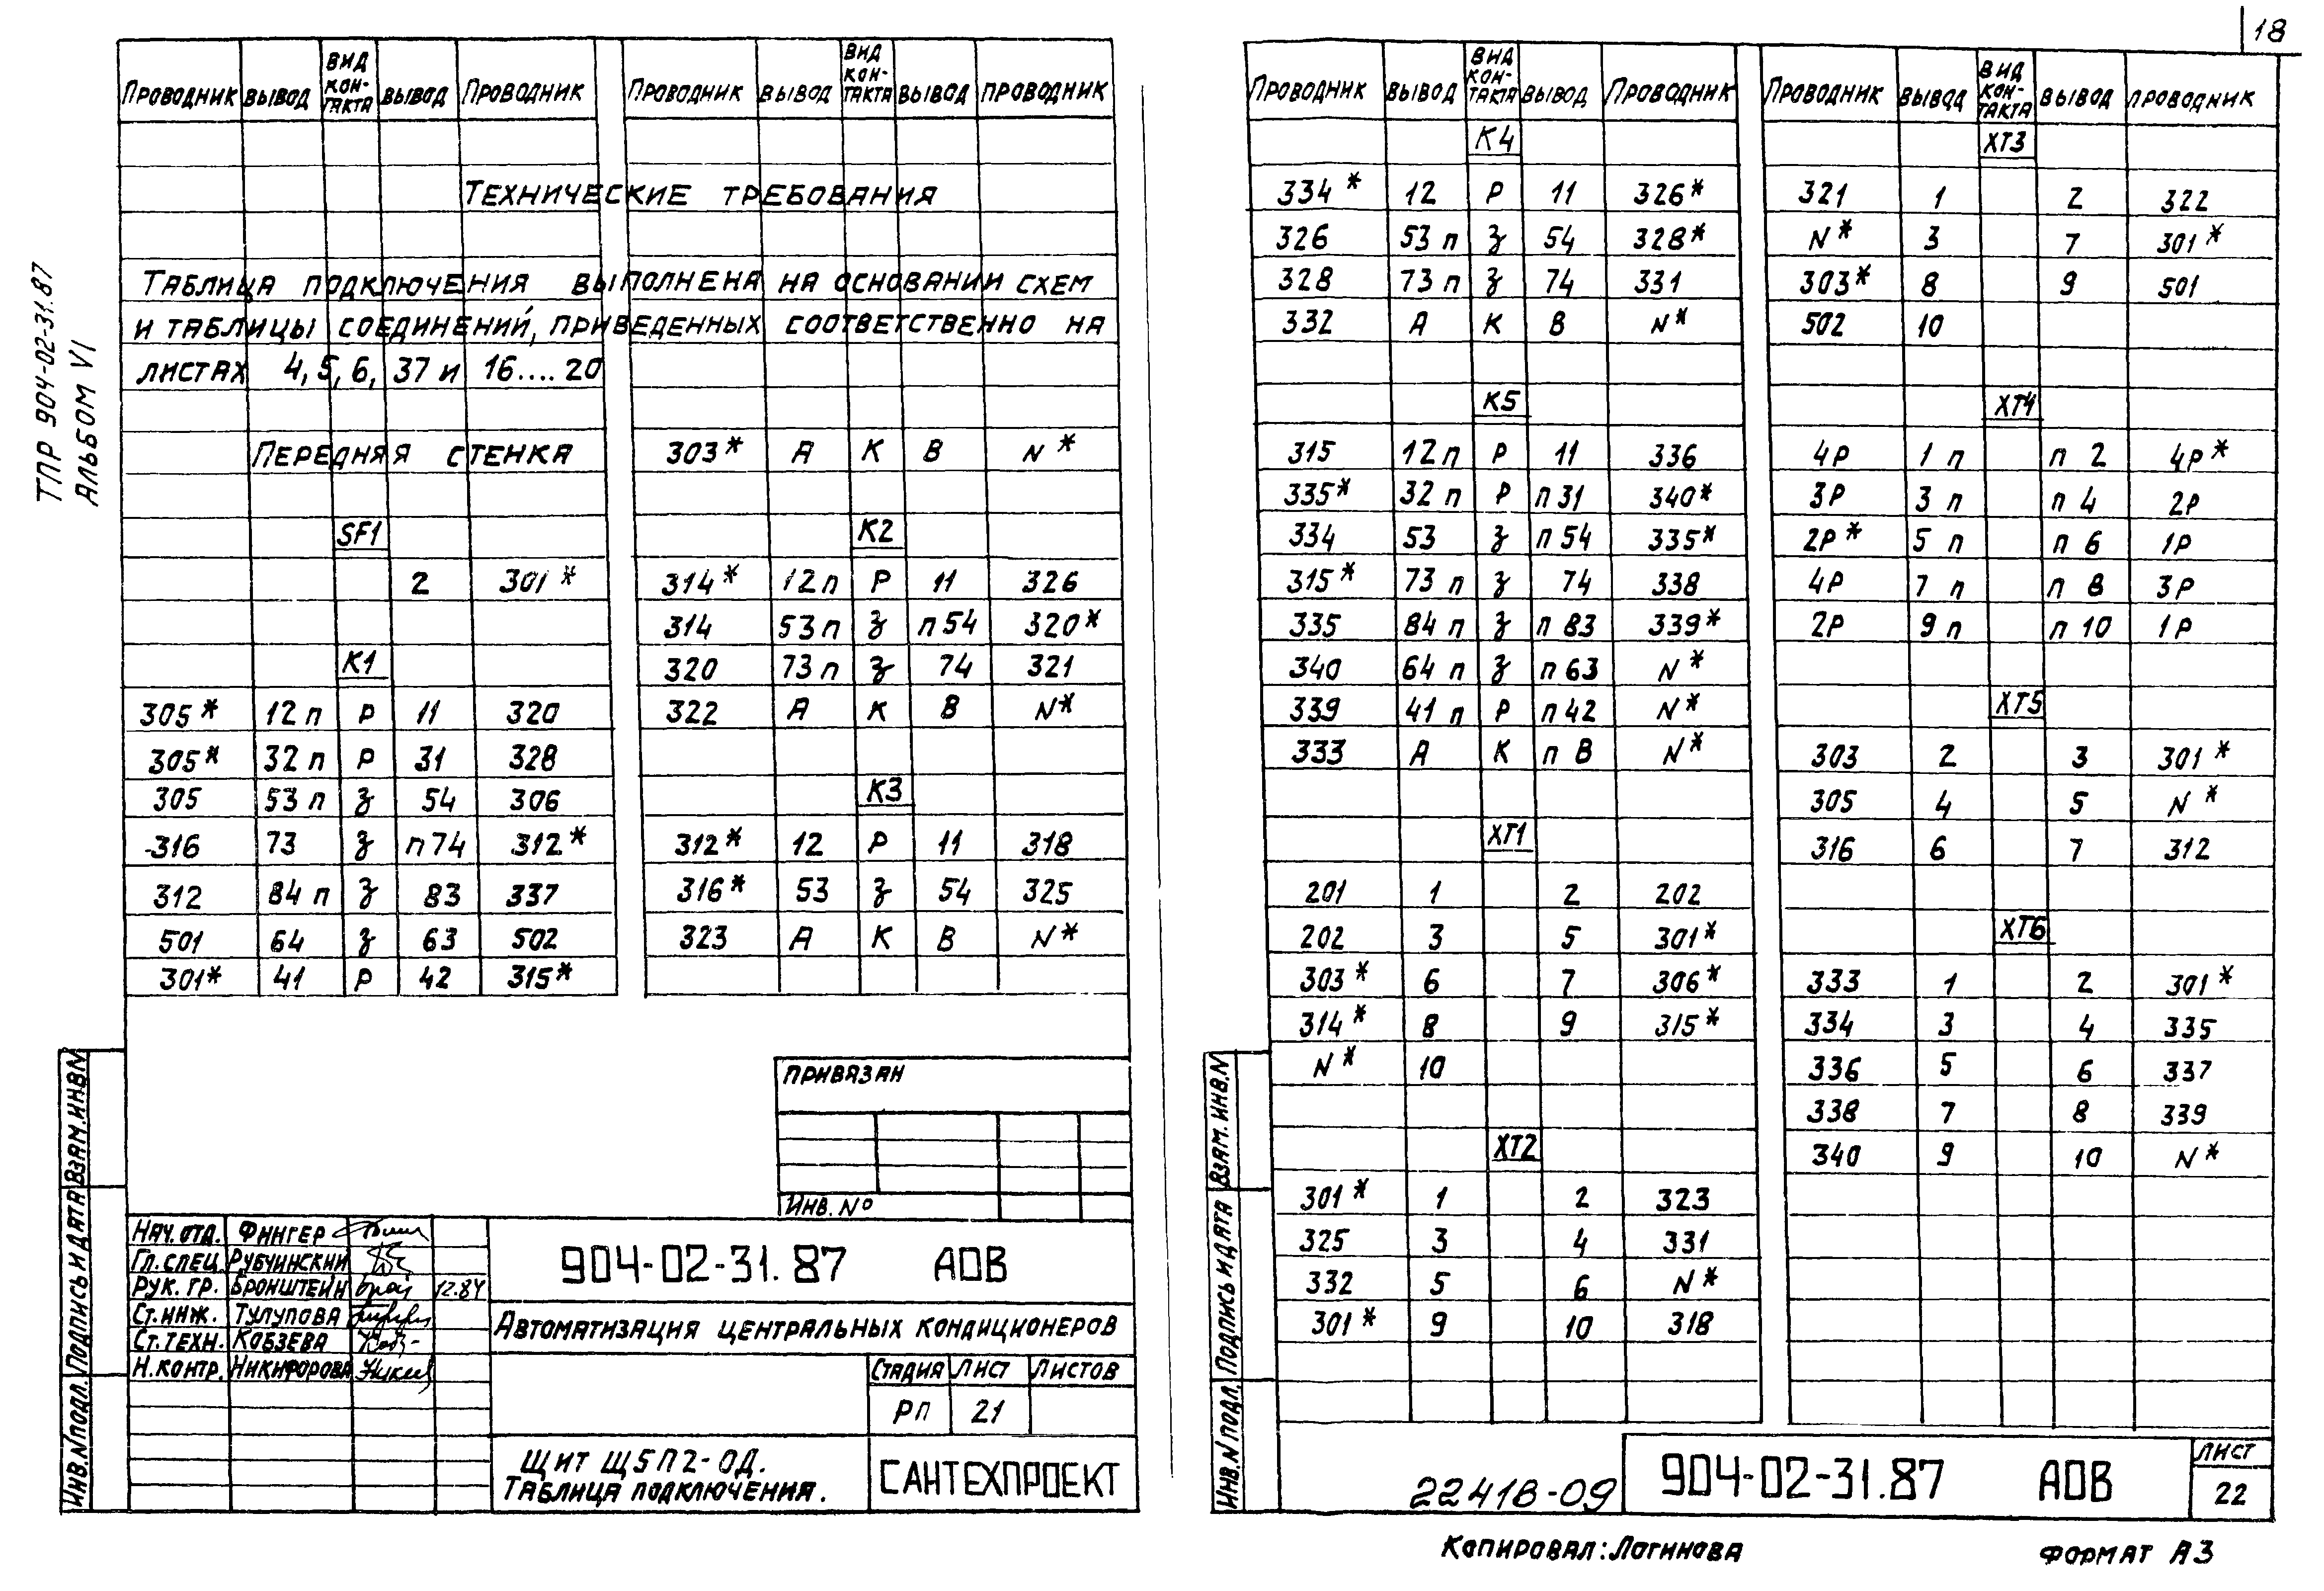 18
ТПР 904-02-31.87
АЛЬБОМ VI
ПРОВОДНИК ВЫВОД ВИД КОН-ТАКТА ВЫВОД ПРОВОДНИК
ТЕХНИЧЕСКИЕ ТРЕБОВАНИЯ
ТАБЛИЦА ПОДКЛЮЧЕНИЯ ВЫПОЛНЕНА НА ОСНОВАНИИ СХЕМ
И ТАБЛИЦЫ СОЕДИНЕНИЙ, ПРИВЕДЕННЫХ СООТВЕТСТВЕННО НА
ЛИСТАХ 4, 5, 6, 37 И 16....20
ПЕРЕДНЯЯ СТЕНКА
SF1
2 301*
K1
305* 12 п Р 11 320
305* 32 п Р 31 328
305 53 п З 54 306
-316 73 З п 74 312*
312 84 п З 83 337
501 64 З 63 502
301* 41 Р 42 315*
ПРОВОДНИК ВЫВОД ВИД КОН-ТАКТА ВЫВОД ПРОВОДНИК
303* А К В N*
K2
314* 12 п Р 11 326
314 53 п З п 54 320*
320 73 п З 74 321
322 А К В N*
K3
312* 12 Р 11 318
316* 53 З 54 325
323 А К В N*
ПРИВЯЗАН
ИНВ. №
НАЧ. ОТД. ФИНГЕР
ГЛ. СПЕЦ. РУБЧИНСКИЙ
РУК. ГР. БРОНШТЕЙН 12.84
СТ. ИНЖ. ТУЛУПОВА
СТ. ТЕХН. КОБЗЕВА
Н. КОНТР. НИКИФОРОВА
904-02-31.87 АОВ
АВТОМАТИЗАЦИЯ ЦЕНТРАЛЬНЫХ КОНДИЦИОНЕРОВ
СТАДИЯ ЛИСТ ЛИСТОВ
РП 21
ЩИТ Щ5П2-ОД.
ТАБЛИЦА ПОДКЛЮЧЕНИЯ.
САНТЕХПРОЕКТ
ИНВ. N ПОДЛ. ПОДПИСЬ И ДАТА ВЗАМ. ИНВ N
ПРОВОДНИК ВЫВОД ВИД КОН-ТАКТА ВЫВОД ПРОВОДНИК
K4
334* 12 Р 11 326*
326 53 п З 54 328*
328 73 п З 74 331
332 А К В N*
K5
315 12 п Р 11 336
335* 32 п Р п 31 340*
334 53 З п 54 335*
315* 73 п З 74 338
335 84 п З п 83 339*
340 64 п З п 63 N*
339 41 п Р п 42 N*
333 А К п В N*
XT1
201 1 2 202
202 3 5 301*
303* 6 7 306*
314* 8 9 315*
N* 10
XT2
301* 1 2 323
325 3 4 331
332 5 6 N*
301* 9 10 318
ПРОВОДНИК ВЫВОД ВИД КОН-ТАКТА ВЫВОД ПРОВОДНИК
XT3
321 1 2 322
N* 3 7 301*
303* 8 9 501
502 10
XT4
4Р 1 п п 2 4Р*
3Р 3 п п 4 2Р
2Р* 5 п п 6 1Р
4Р 7 п п 8 3Р
2Р 9 п п 10 1Р
XT5
303 2 3 301*
305 4 5 N*
316 6 7 312
XT6
333 1 2 301*
334 3 4 335
336 5 6 337
338 7 8 339
340 9 10 N*
ИНВ. N ПОДЛ. ПОДПИСЬ И ДАТА ВЗАМ. ИНВ. N
22418-09
904-02-31.87 АОВ
ЛИСТ
22
КОПИРОВАЛ: ЛОГИНОВА ФОРМАТ А3